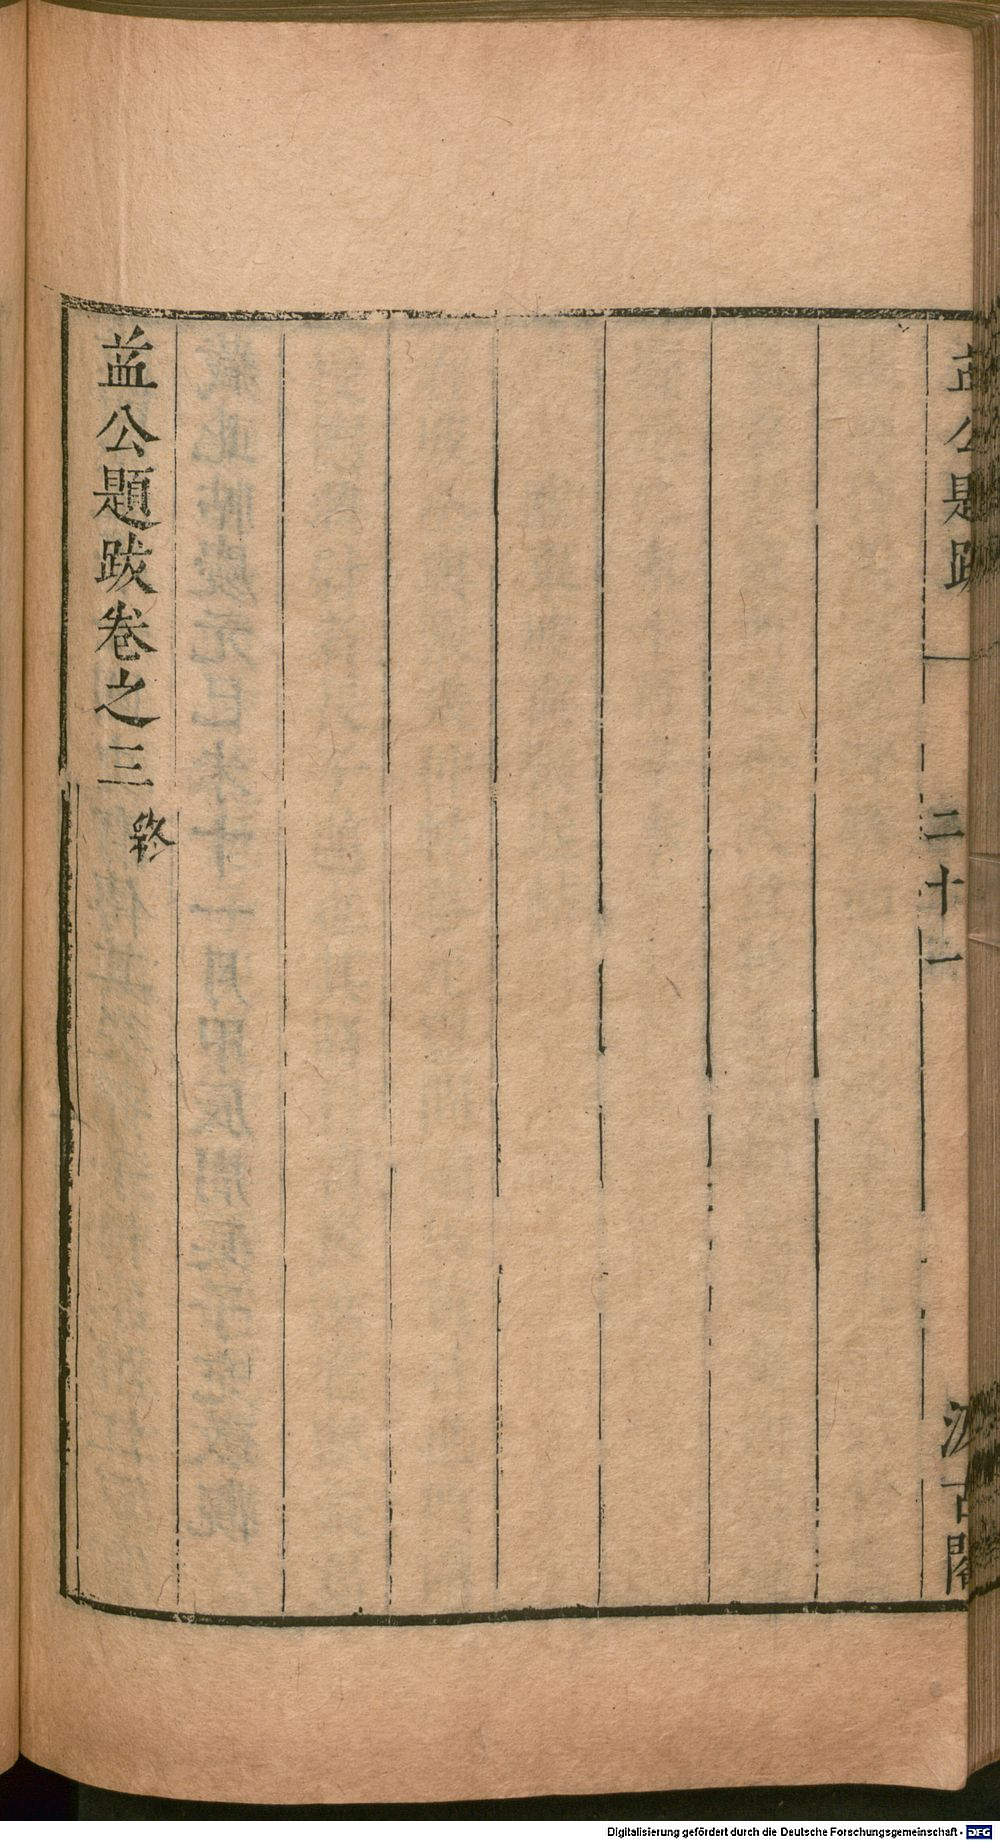 益公題跋
二十一
汲古閣
益公題跋卷之三終
Digitalisierung gefördert durch die Deutsche Forschungsgemeinschaft - DFG